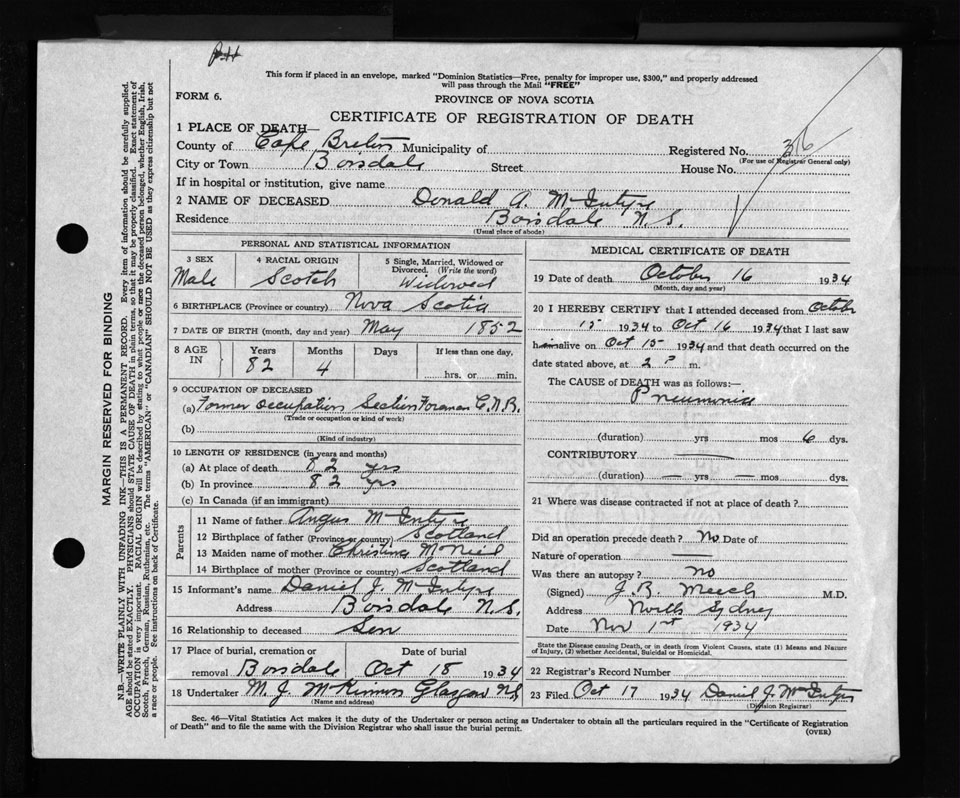 This form if placed in an envelope, marked "Dominion Statistics—Free, penalty for improper use, $300," and properly addressed
will pass through the Mail "FREE"
FORM 6.
PROVINCE OF NOVA SCOTIA
CERTIFICATE OF REGISTRATION OF DEATH
1 PLACE OF DEATH—
County of Cape Breton Municipality of Registered No. 36
(For use of Registrar General only)
City or Town Boisdale Street House No.
If in hospital or institution, give name
2 NAME OF DECEASED Donald A. McIntyre
Residence Boisdale N.S.
(Usual place of abode)
PERSONAL AND STATISTICAL INFORMATION
3 SEX 4 RACIAL ORIGIN 5 Single, Married, Widowed or
Divorced. (Write the word)
Male Scotch Widowed
6 BIRTHPLACE (Province or country) Nova Scotia
7 DATE OF BIRTH (month, day and year) May 1852
8 AGE IN Years Months Days If less than one day,
82 4 hrs. or min.
9 OCCUPATION OF DECEASED
(a) Former occupation Section Foreman C.N.R.
(Trade or occupation or kind of work)
(b)
(Kind of industry)
10 LENGTH OF RESIDENCE (in years and months)
(a) At place of death 82 yrs
(b) In province 82 yrs
(c) In Canada (if an immigrant)
Parents
11 Name of father Angus McIntyre
12 Birthplace of father (Province or country) Scotland
13 Maiden name of mother Christina McNeil
14 Birthplace of mother (Province or country) Scotland
15 Informant's name Daniel J. McIntyre
Address Boisdale N.S.
16 Relationship to deceased Son
17 Place of burial, cremation or Date of burial
removal Boisdale Oct 18 1934
18 Undertaker M. J. McKinnon Glasgow NS
(Name and address)
MEDICAL CERTIFICATE OF DEATH
19 Date of death October 16 1934
(Month, day and year)
20 I HEREBY CERTIFY that I attended deceased from October
15 1934 to Oct 16 1934 that I last saw
him alive on Oct 15 1934 and that death occurred on the
date stated above, at 2 P m.
The CAUSE of DEATH was as follows:—
Pneumonia
(duration) yrs mos 6 dys.
CONTRIBUTORY
(duration) yrs mos dys.
21 Where was disease contracted if not at place of death?
Did an operation precede death? No Date of
Nature of operation
Was there an autopsy? No
(Signed) J.B. Meech M.D.
Address North Sydney
Date Nov 1st 1934
State the Disease causing Death, or in death from Violent Causes, state (1) Means and Nature
of Injury, (2) whether Accidental, Suicidal or Homicidal.
22 Registrar's Record Number
23 Filed Oct 17 1934 Daniel J. McIntyre
(Division Registrar)
Sec. 46—Vital Statistics Act makes it the duty of the Undertaker or person acting as Undertaker to obtain all the particulars required in the "Certificate of Registration
of Death" and to file the same with the Division Registrar who shall issue the burial permit.
(OVER)
MARGIN RESERVED FOR BINDING
N.B.—WRITE PLAINLY WITH UNFADING INK—THIS IS A PERMANENT RECORD. Every item of information should be carefully supplied.
AGE should be stated EXACTLY. PHYSICIANS should STATE CAUSE OF DEATH in plain terms, so that it may be properly classified. Exact statement of
OCCUPATION is very important. RACIAL ORIGIN will be described by stating to what people or race the deceased person belonged, whether English, Irish,
Scotch, French, German, Russian, Ruthenian, etc. The terms "AMERICAN" or "CANADIAN" SHOULD NOT BE USED as they express citizenship but not
a race or people. See instructions on back of Certificate.